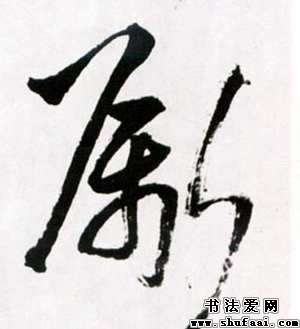 勵
书法爱网
www.shufaai.com